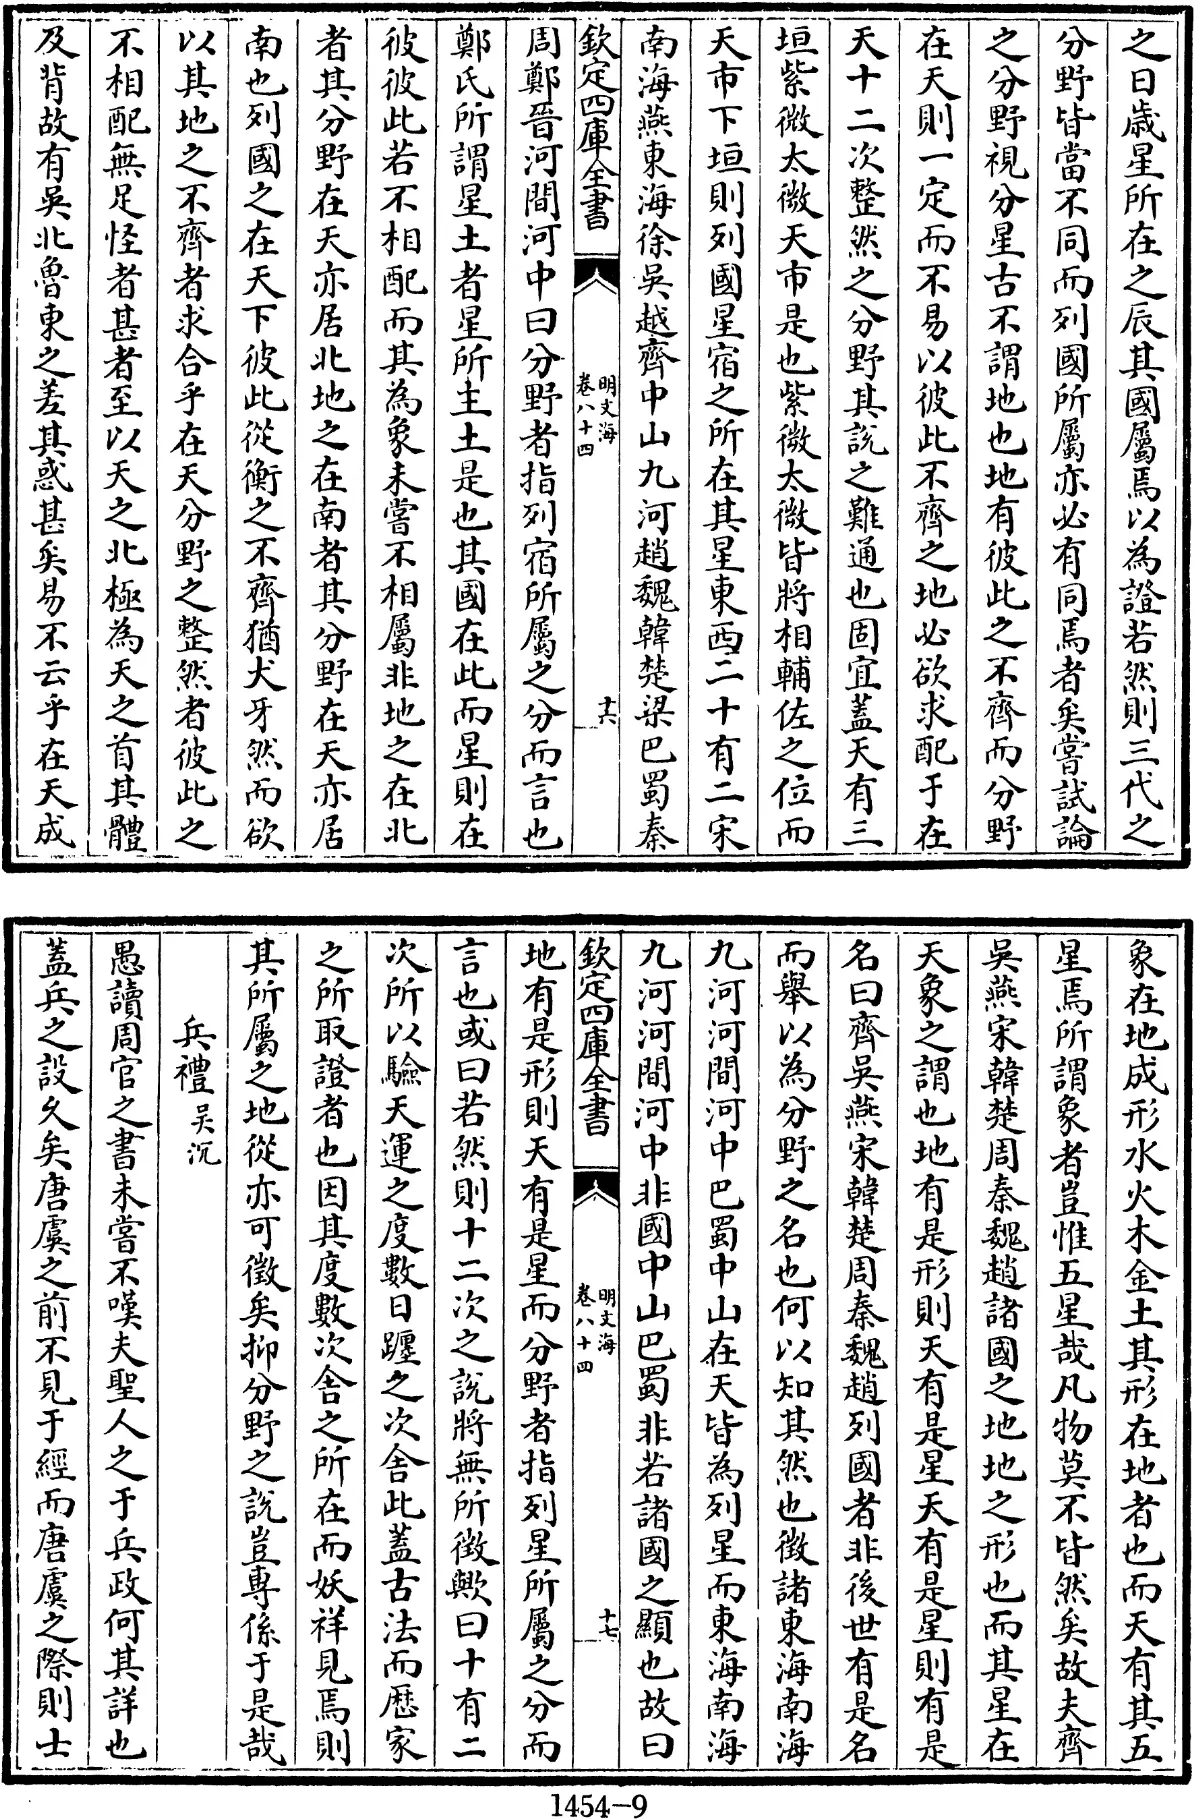 之日歲星所在之辰其國屬焉以為證若然則三代之
分野皆當不同而列國所屬亦必有同焉者矣嘗試論
之分野視分星古不謂地也地有彼此之不齊而分野
在天則一定而不易以彼此不齊之地必欲求配于在
天十二次整然之分野其說之難通也固宜蓋天有三
垣紫微太微天市是也紫微太微皆將相輔佐之位而
天市下垣則列國星宿之所在其星東西二十有二宋
南海燕東海徐吳越齊中山九河趙魏韓楚梁巴蜀秦
欽定四庫全書
明文海
卷八十四
十六
周鄭晉河間河中曰分野者指列宿所屬之分而言也
鄭氏所謂星土者星所主土是也其國在此而星則在
彼彼此若不相配而其為象未嘗不相屬非地之在北
者其分野在天亦居北地之在南者其分野在天亦居
南也列國之在天下彼此從衡之不齊猶犬牙然而欲
以其地之不齊者求合乎在天分野之整然者彼此之
不相配無足怪者甚者至以天之北極為天之首其體
及背故有吳北魯東之差其惑甚矣易不云乎在天成
象在地成形水火木金土其形在地者也而天有其五
星焉所謂象者豈惟五星哉凡物莫不皆然矣故夫齊
吳燕宋韓楚周秦魏趙諸國之地地之形也而其星在
天象之謂也地有是形則天有是星天有是星則有是
名曰齊吳燕宋韓楚周秦魏趙列國者非後世有是名
而舉以為分野之名也何以知其然也徵諸東海南海
九河河間河中巴蜀中山在天皆為列星而東海南海
九河河間河中非國中山巴蜀非若諸國之顯也故曰
欽定四庫全書
明文海
卷八十四
十七
地有是形則天有是星而分野者指列星所屬之分而
言也或曰若然則十二次之說將無所徵歟曰十有二
次所以驗天運之度數日躔之次舍此蓋古法而厯家
之所取證者也因其度數次舍之所在而妖祥見焉則
其所屬之地從亦可徵矣抑分野之說豈專係于是哉
兵禮 吳沉
愚讀周官之書未嘗不嘆夫聖人之于兵政何其詳也
蓋兵之設久矣唐虞之前不見于經而唐虞之際則士
1454-9